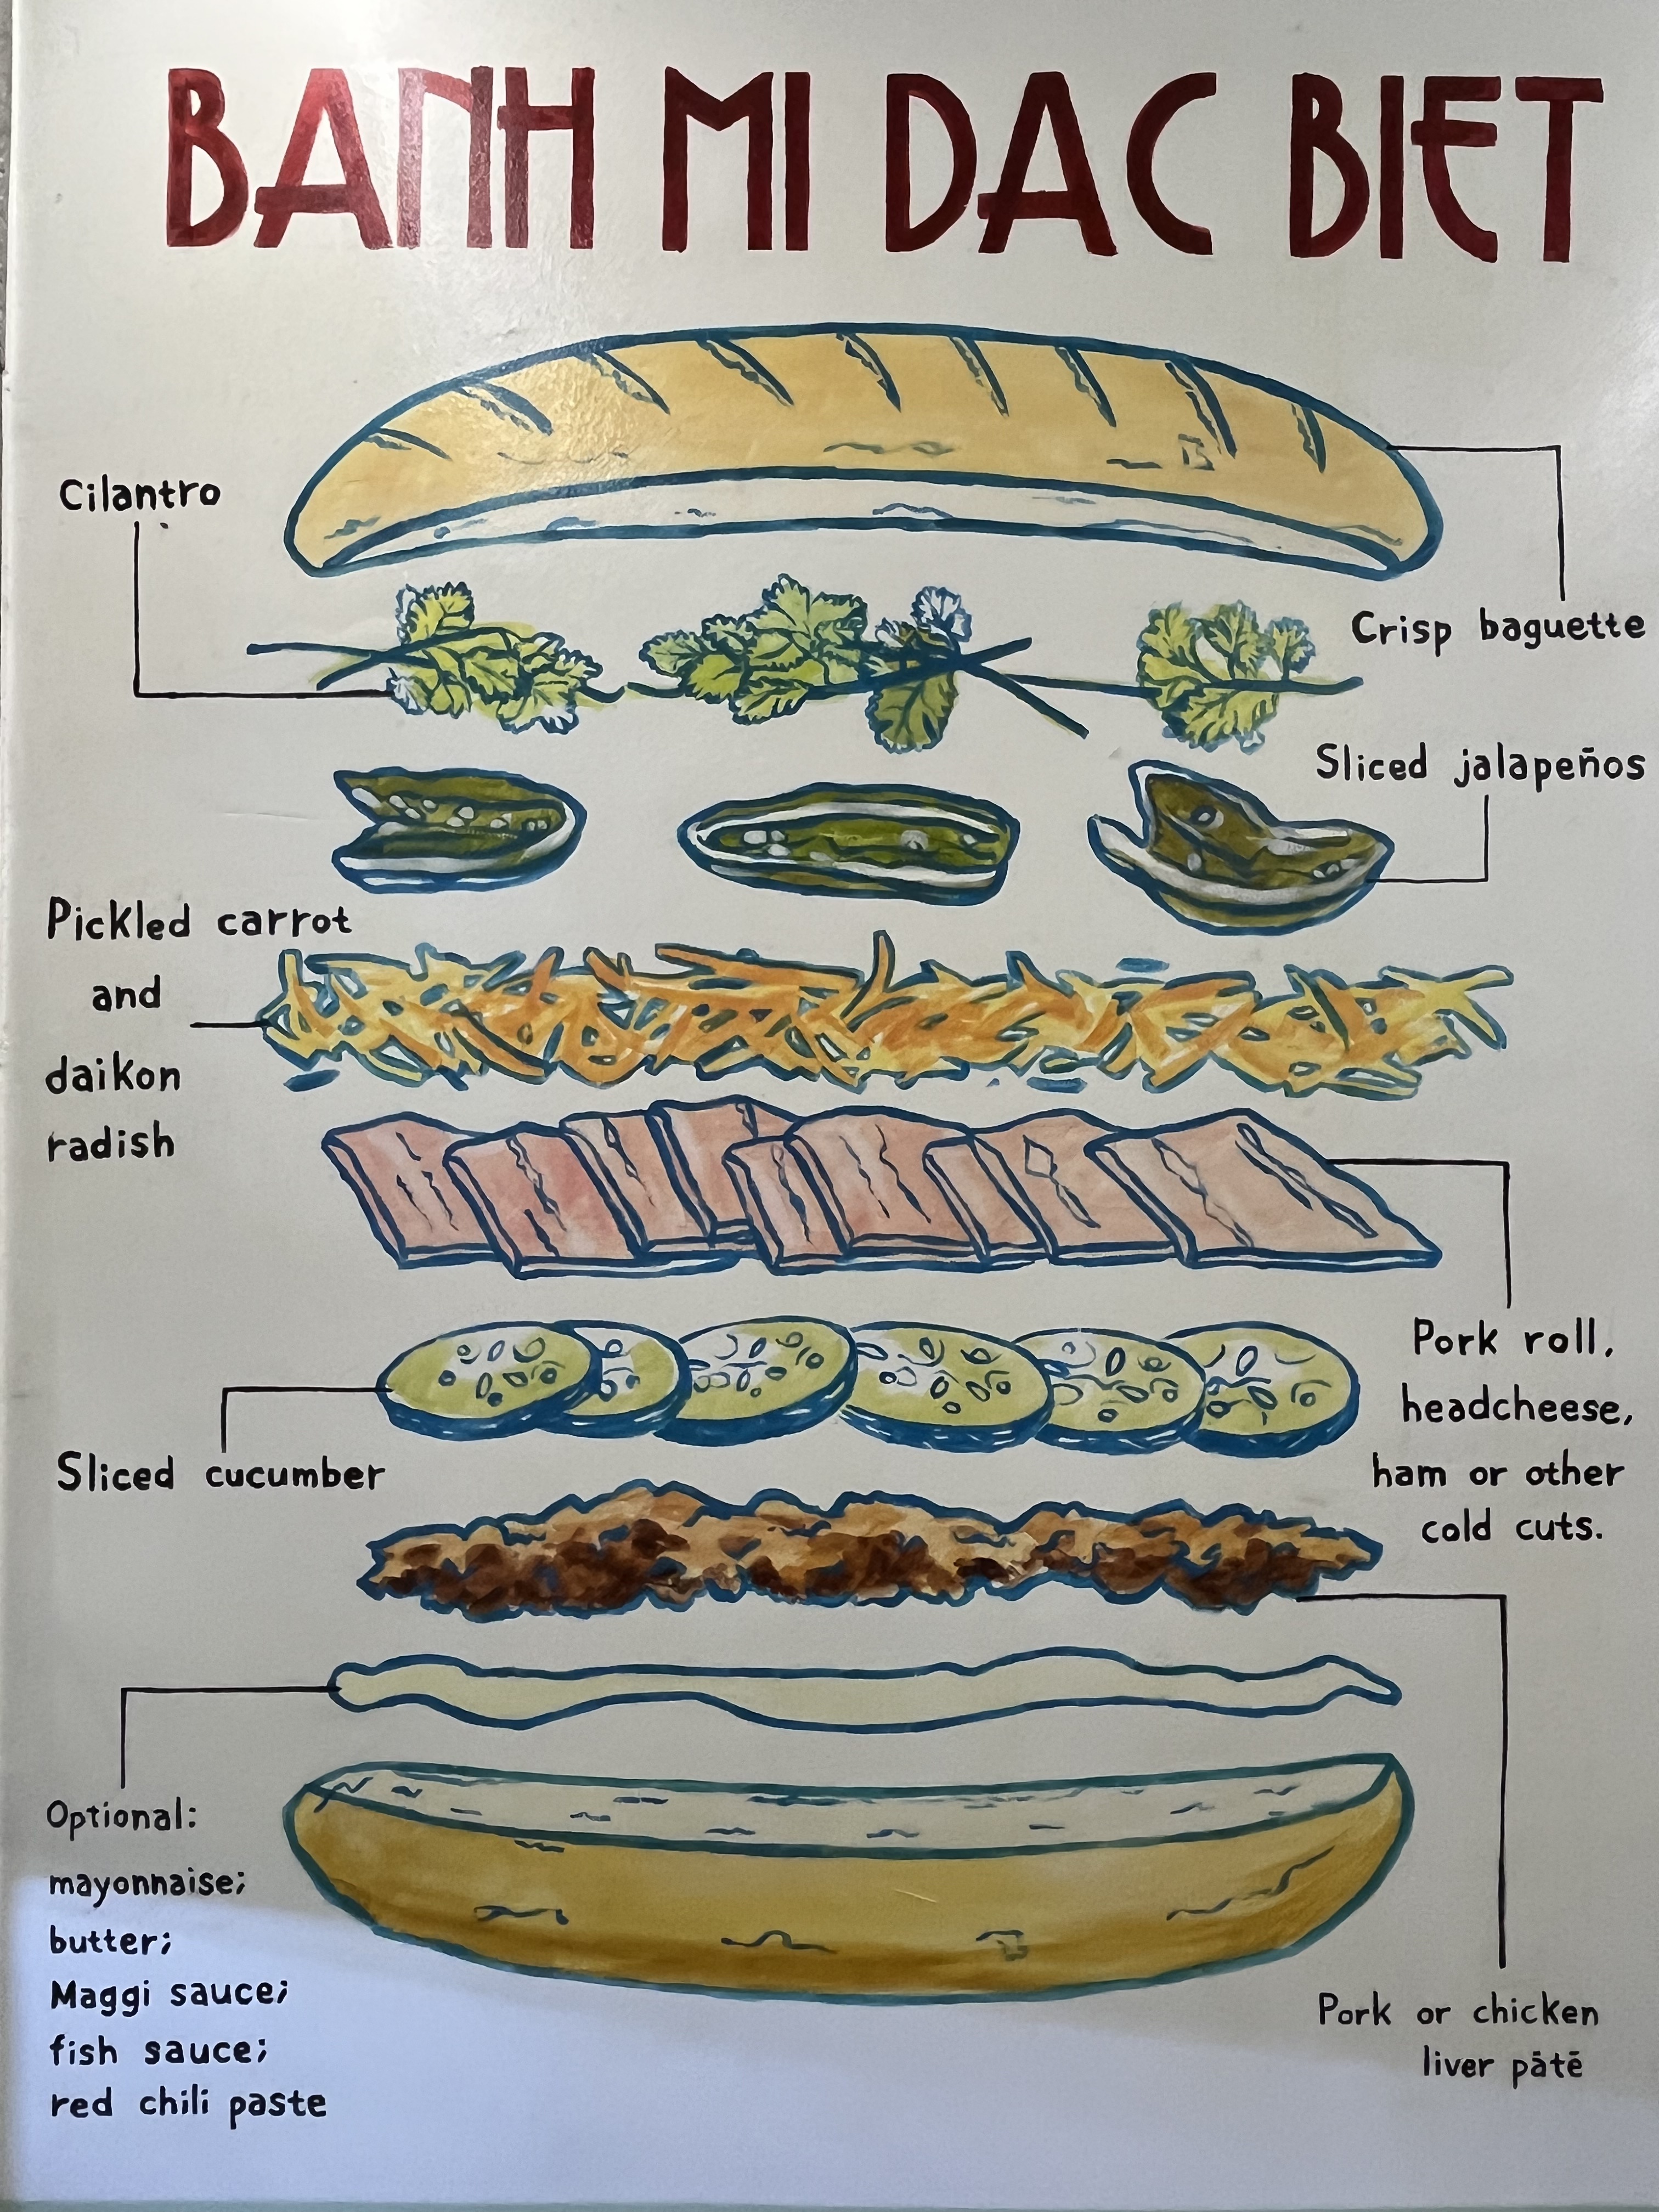 BANH MI DAC BIET
Cilantro
Crisp baguette
Sliced jalapeños
Pickled carrot
and
daikon
radish
Pork roll,
headcheese,
ham or other
cold cuts.
Sliced cucumber
Optional:
mayonnaise;
butter;
Maggi sauce;
fish sauce;
red chili paste
Pork or chicken
liver pātē